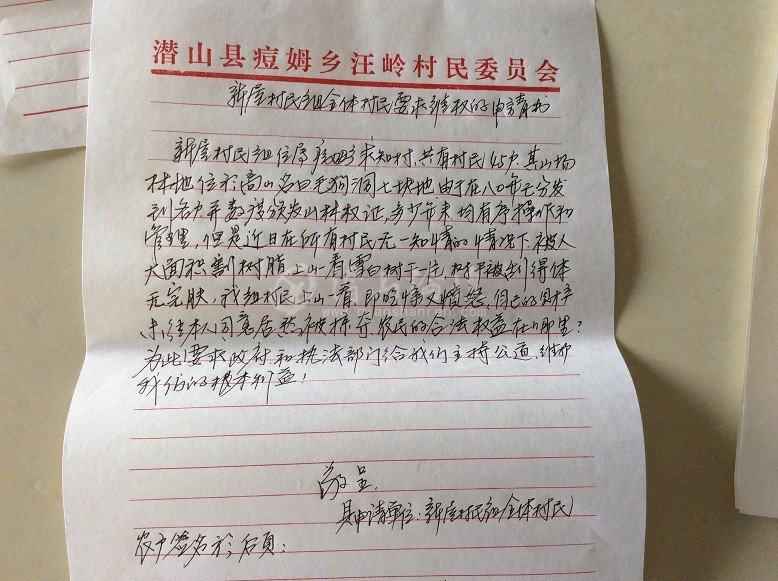 潜山县痘姆乡汪岭村民委员会
新屋村民组全体村民要求维权的申请书
新屋村民组位原痘姆乡求知村,共有村民45户,其山场
林地位於高山名曰毛狗洞七块地由于在八0年己分发
到各户并数讲颁发山林权证,多少年来均有序操作和
管理,但是近日在所有村民无一知情的情况下被人
大面积割树脂上山一看,雪白树干一片,树干被割得体
无完肤,我组村民上山一看,即吃惊又愤怒,自己的财梓
未经本人同意居然被掠夺,农民的合法权益在哪里?
为此要求政府和执法部门给我们主持公道,维护
我们的根本利益!
敬呈
具申请单位:新屋村民组全体村民
农户签名於后页: